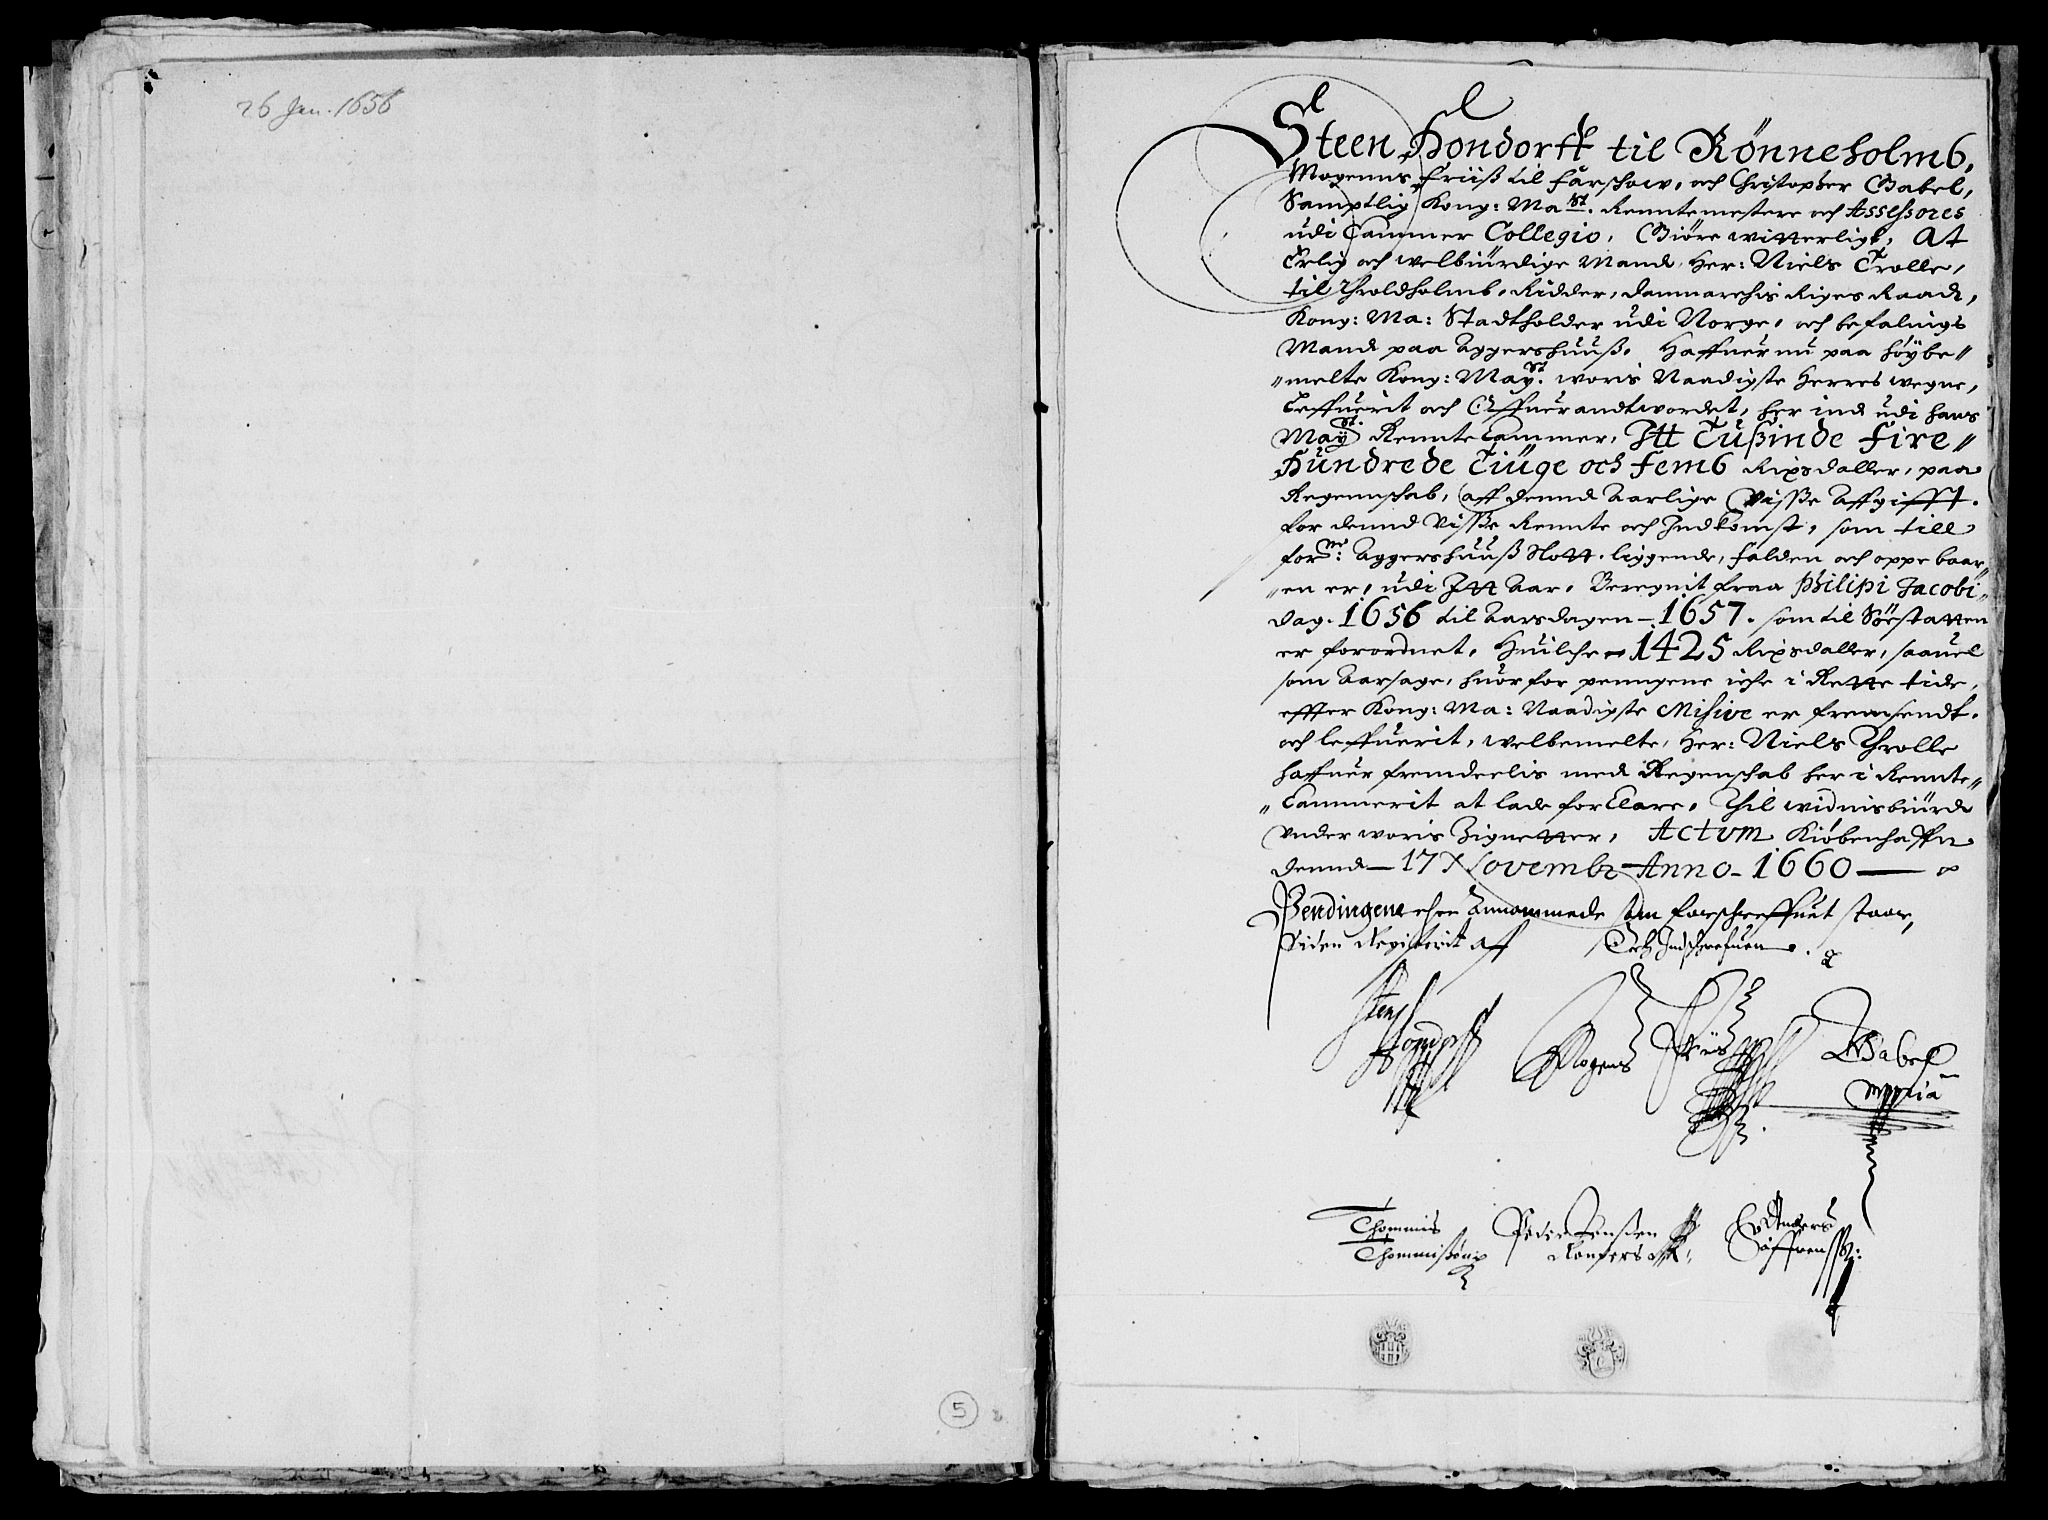 26 Jan. 1656
Steen Hondorff til Rönneholmb,
Mogenns Friiß til Farschow, och Christopher Gabel,
Samptlig Kong: Ma st. Renntemestere och Assessores
udi Cammer Collegio, Giöre witterligt, At
Erlig och welbiürdige Mand, Her: Niels Trolle,
til Throldholmb, Ridder, Danmarchis Riges Raad,
Kong: Ma: Stadtholder udi Norge, och befalings
Mand paa Aggershuuß, Haffuer nu paa höÿbe//
//melte Kong: Maÿ st. woris Naadigste Herres wegne,
Leffuerit och Offuerandtwordet, her ind udi hans
Maÿ st. RennteCammer, Itt Tüßinde Fire//
Hündrede Tiüge och Femb Rixsdaller, paa
Regennschab, aff dennd Aarlige Visße Affgifft.
for dennd Visße Rennte och Indkomst, som till
for ne: Aggershuuß Slott liggende, falden och oppebaar//
//en er, udi Itt Aar, Beregnit fraa Philipi Jacobi//
dag. 1656 til Aarsdagen 1657. som til Söestatten
er forordnet, Huilche 1425 Rixsdaller, saauel
som Aarsage, huorfor penngene iche i Rette tide,
effter Kong: Ma: Naadigste Misive er fremsendt.
och leffuerit, welbemelte, Her: Niels Throlle
haffuer fremdeelis med Regenschab her i Rennte//
//Cammerit at lade forClare, Thil widnisbiürd
Vnder woris Zignetter, Actum Kiöbenhaffn
dennd 17 Novembr Anno 1660
Pendingene ehre Annammede som forschreffuet staar,
Siden Registerit aff Och Indschrefuen.
Sten Hondorff Mogens Friis CGabel
mppria
Thommis Peder Jensen Anders
Thommißönn Söffrenß:
5